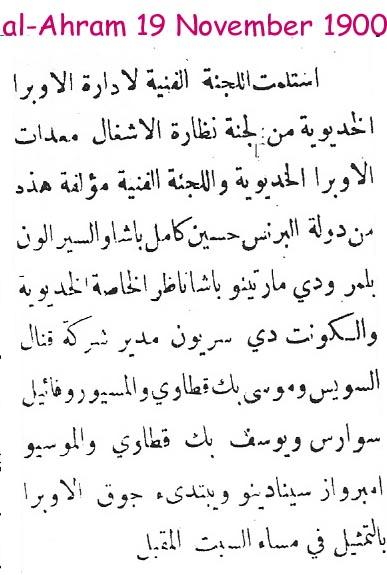 al-Ahram 19 November 1900
استلمت اللجنة الفنية لادارة الاوبرا
الخديوية من لجنة نظارة الاشغال معدات
الاوبرا الخديوية واللجنة الفنية مؤلفة هذه
من دولة البرنس حسين كامل باشا والسير الون
بلمر ودي مارتينو باشا ناظر الخاصة الخديوية
والكونت دي سريون مدير شركة قنال
السويس وموسى بك قطاوي والمسيو روفائيل
سوارس ويوسف بك قطاوي والموسيو
امبرواز سينادينو ويبتدىء جوق الاوبرا
بالتمثيل في مساء السبت المقبل